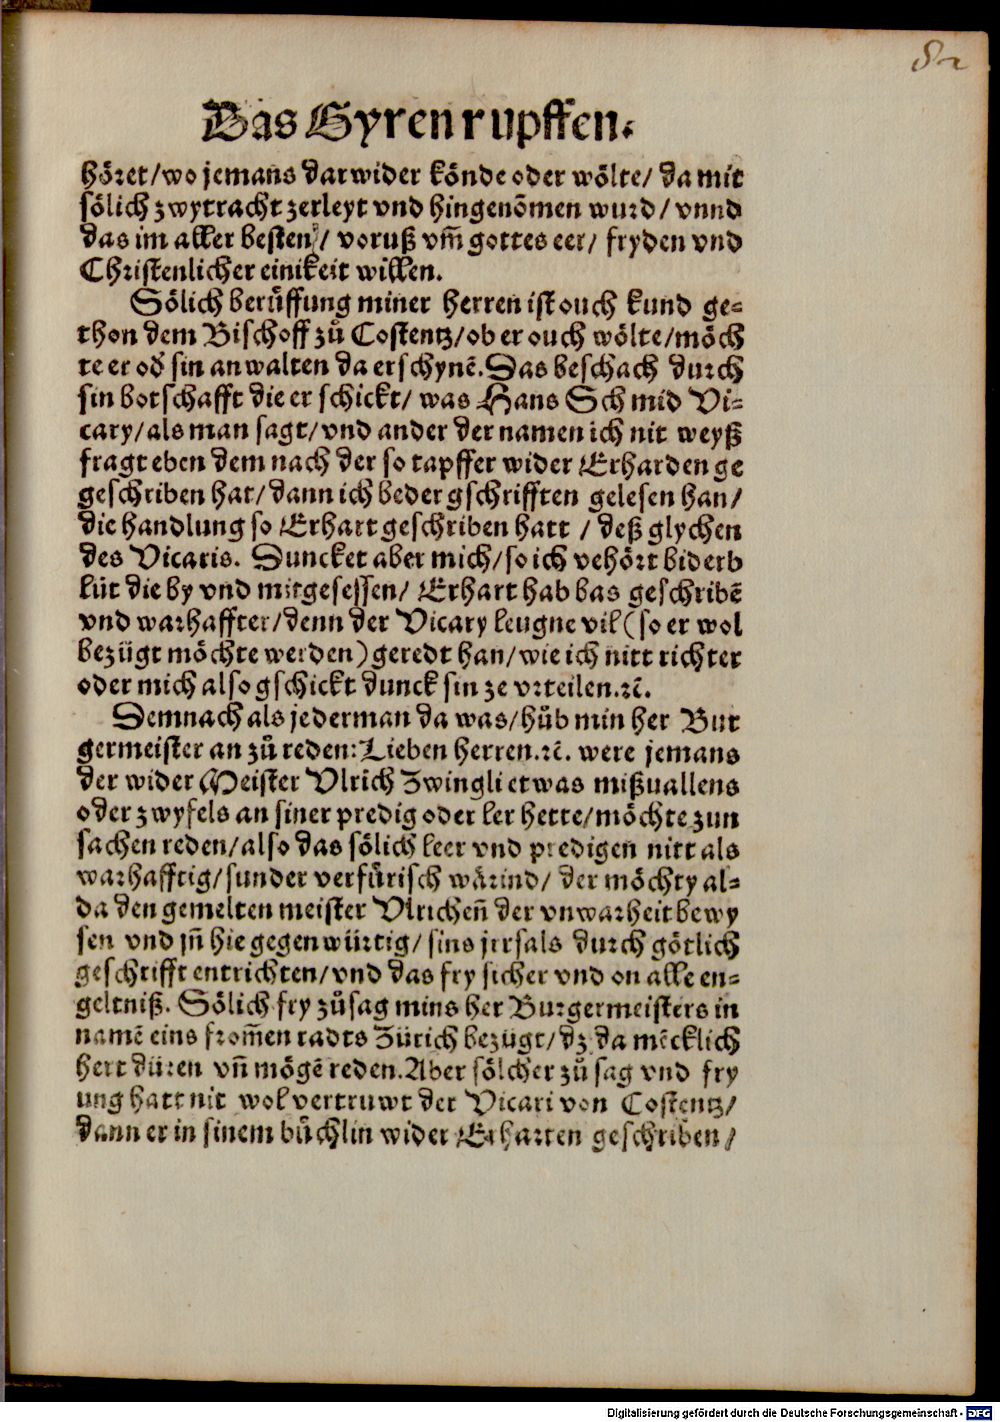 82
Das Gyrenrupffen.
höret/wo jemans darwider könde oder wölte/ da mit
sölich zwytracht zerleyt vnd hingenōmen wurd/ vnnd
das im aller besten/ voruß vm̄ gottes eer/ fryden vnd
Christenlicher einikeit willen.
Sölich berüffung miner herren ist ouch kund ge=
thon dem Bischoff zů Costentz/ob er ouch wölte/möch
te er od̕ sin anwalten da erschynē. Das beschach durch
sin botschafft die er schickt/ was Hans Schmid Vi=
cary/als man sagt/vnd ander der namen ich nit weyß
fragt eben dem nach der so tapffer wider Erharden ge
geschriben hat/dann ich beder gschrifften gelesen han/
die handlung so Erhart geschriben hatt / deß glychen
des Vicaris. Duncket aber mich/so ich vehört biderb
lüt die by vnd mitgesessen/ Erhart hab bas geschribē
vnd warhaffter/denn der Vicary leugne vil(so er wol
bezügt möchte werden)geredt han/wie ich nitt richter
oder mich also gschickt dunck sin ze vrteilen.ꝛc̄.
Demnach als jederman da was/hůb min her Bur
germeister an zů reden: Lieben herren.ꝛc̄. were jemans
der wider Meister Vlrich Zwingli etwas mißuallens
oder zwyfels an siner predig oder ler hette/möchte zun
sachen reden/also das sölich leer vnd predigen nitt als
warhafftig/sunder verfürisch wärind/ der möchty al=
da den gemelten meister Vlrichen̄ der vnwarheit bewy
sen vnd jn̄ hie gegenwürtig/ sins jrrsals durch götlich
geschrifft entrichten/vnd das fry sicher vnd on alle en=
geltniß. Sölich fry zůsag mins her Burgermeisters in
namē eins from̄en radts Zürich bezügt/dz da mēcklich
hett düren vn̄ mögē reden. Aber sölcher zů sag vnd fry
ung hatt nit wol vertruwt der Vicari von Costentz/
dann er in sinem büchlin wider Erharten geschriben/
Digitalisierung gefördert durch die Deutsche Forschungsgemeinschaft - DFG